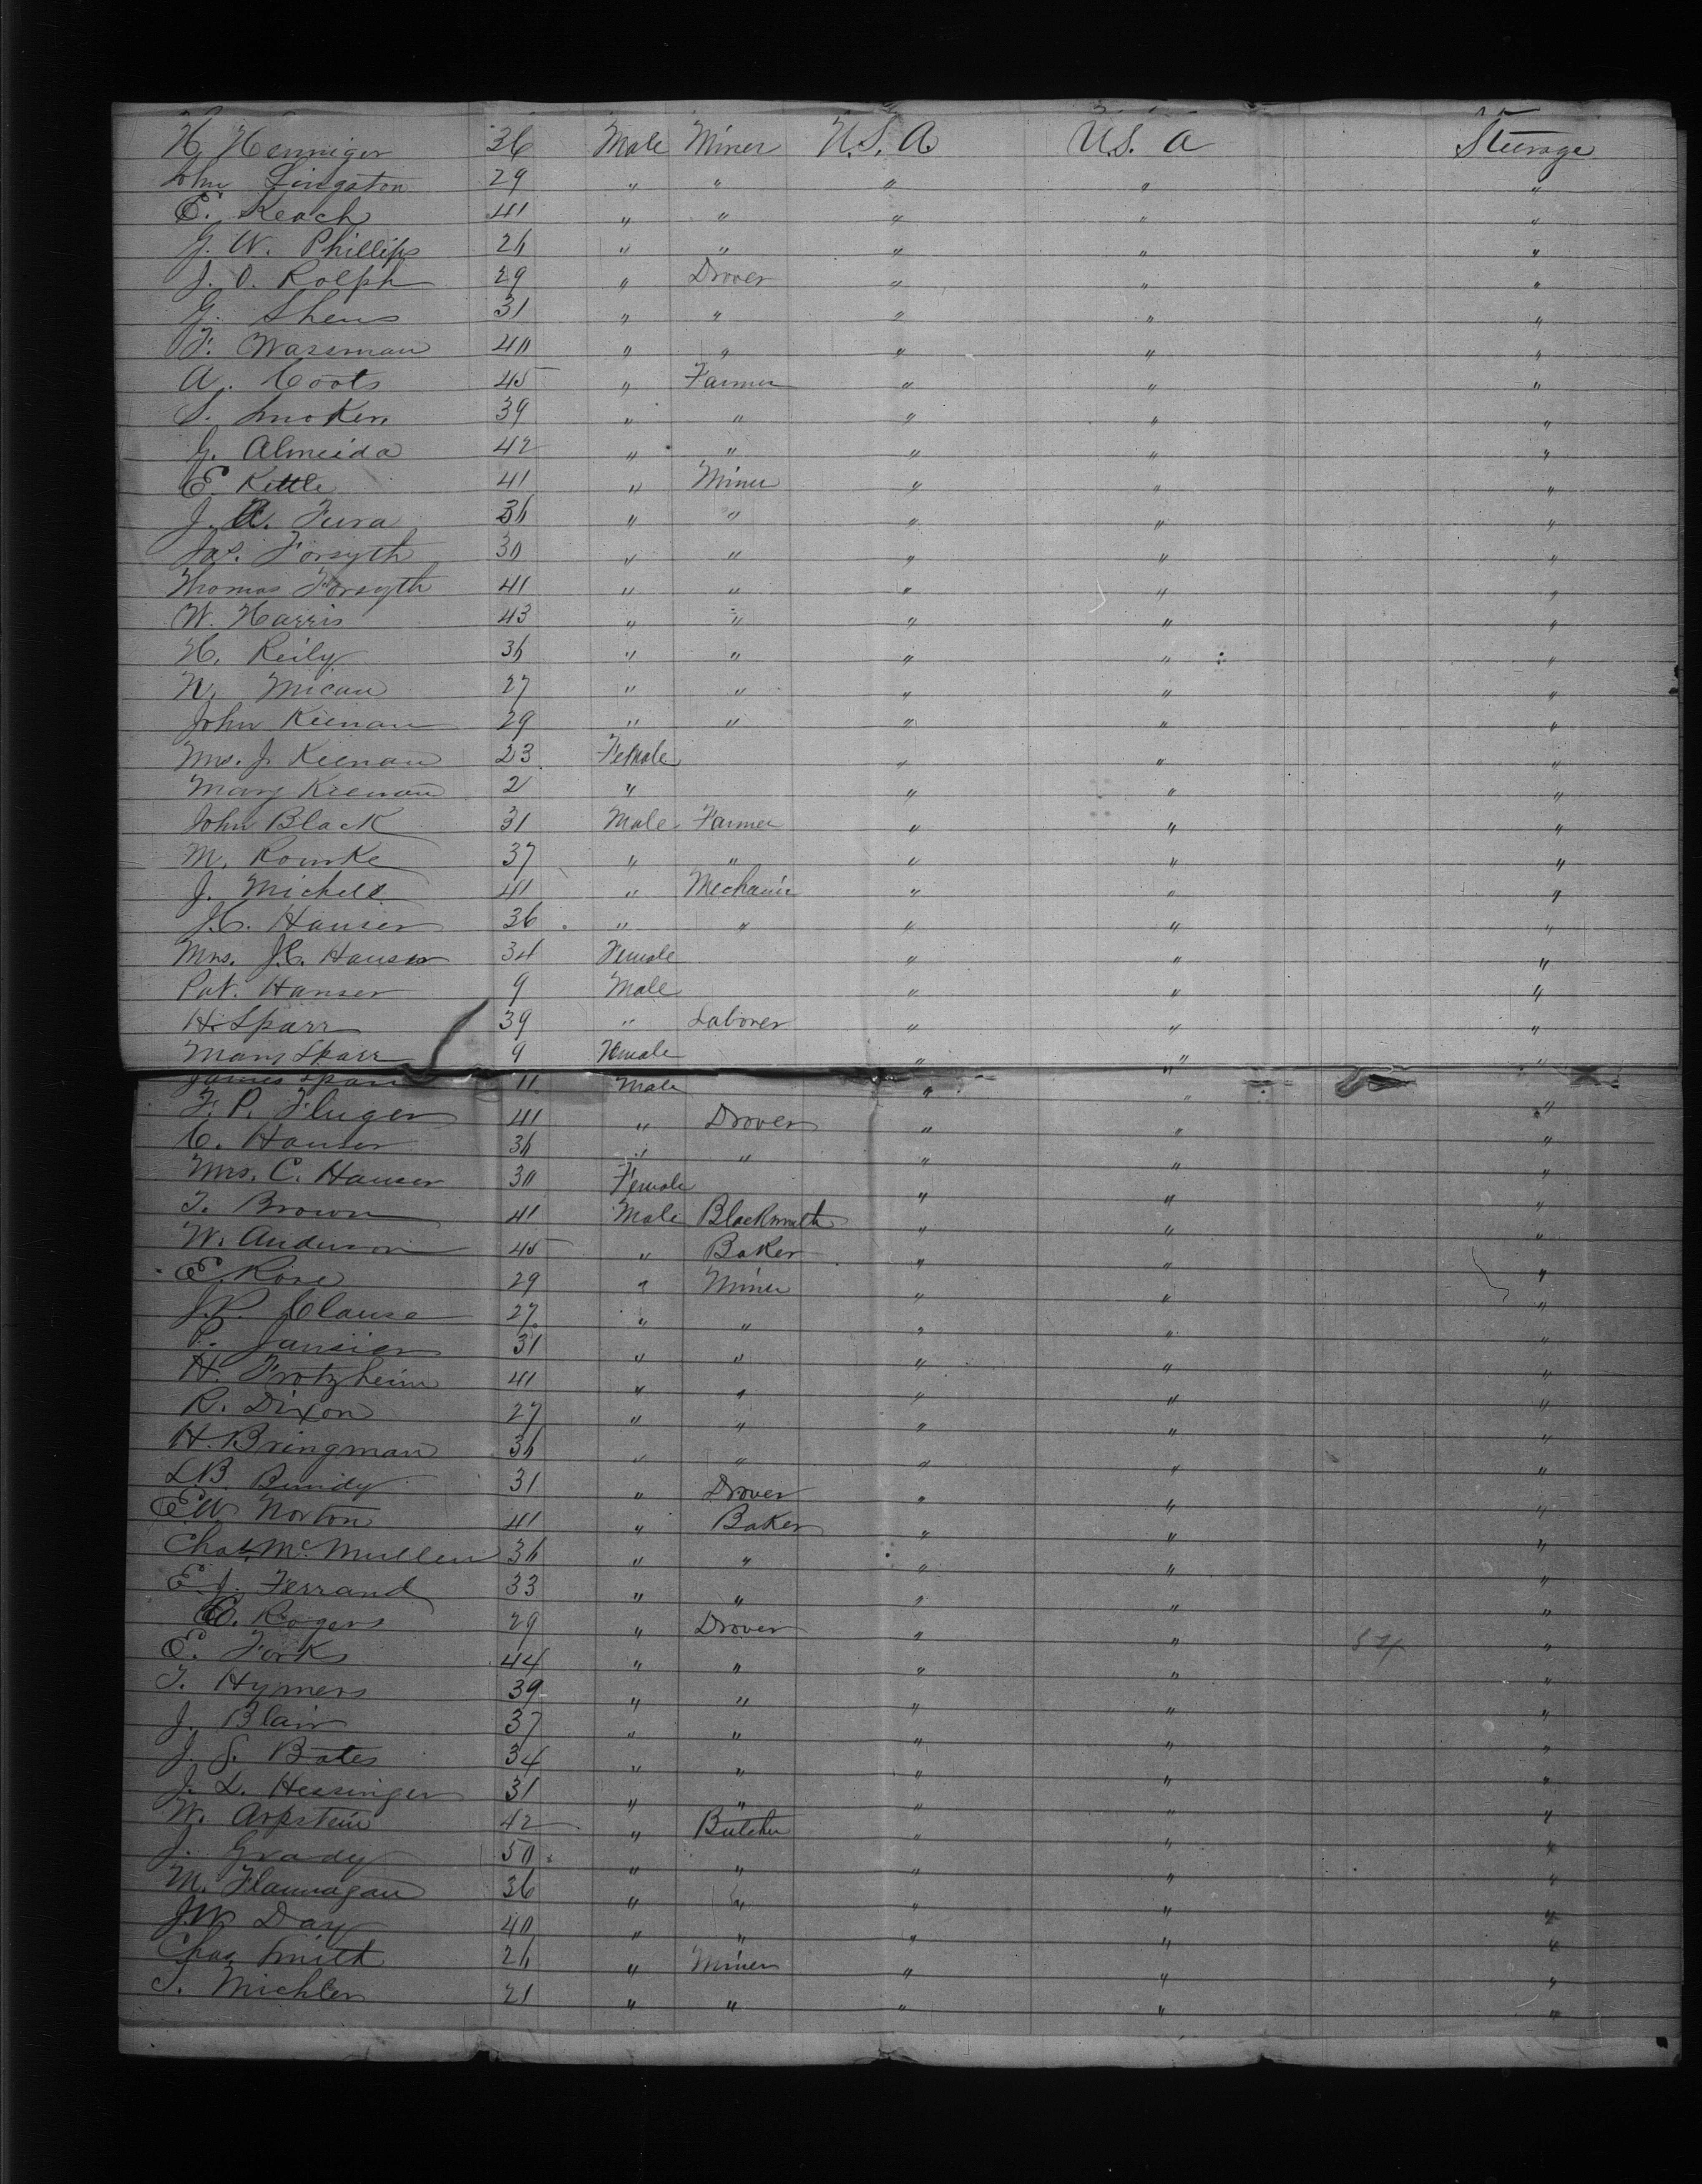 H. Henniger 36 Male Miner U.S.A. U.S. A Steerage
John Lingston 29 " " " " "
E. Keach 41 " " " " "
G. W. Phillips 26 " " " " "
J. O. Rolph 29 " Drover " " "
G. Shens 31 " " " " "
F. Wassman 40 " " " " "
A. Coots 45 " Farmer " " "
S. Smoker 39 " " " " "
G. Almeida 42 " " " " "
E. Kettle 41 " Miner " " "
J. A. Fura 36 " " " " "
Jas. Forsyth 30 " " " " "
Thomas Forsyth 41 " " " " "
W. Harris 43 " " " " "
H. Reily 36 " " " " "
N. Micau 27 " " " " "
John Keenan 29 " " " " "
Mrs. J Keenan 23 Female " " "
Mary Keenan 2 " " " "
John Black 31 Male Farmer " " "
M. Rourke 37 " " " " "
J. Michell 41 " Mechanic " " "
J.C. Hanser 36 " " " " "
Mrs. J.C. Hanser 34 Female " " "
Pat. Hanser 9 Male " " "
H. Sparr 39 " Laborer " " "
Mary Sparr 9 Female " " "
James Sparr 11 Male " " "
F. P. Fluger 41 " Drover " " "
C. Hanser 36 " " " " "
Mrs. C. Hanser 30 Female " " "
T. Brown 41 Male Blacksmith " " "
W. Anderson 45 " Baker " " "
E. Rose 29 " Miner " " "
J.P. Clause 27 " " " " "
P. Jansien 31 " " " " "
H. Trotzheim 41 " " " " "
R. Dixon 27 " " " " "
H. Bringman 36 " " " " "
L.B. Bundy 31 " Drover " " "
E.W. Norton 41 " Baker " " "
Chas. McMullen 36 " " " " "
E. J. Ferrand 33 " " " " "
C. Rogers 29 " Drover " " "
E. Fork 44 " " " " "
T. Hymers 39 " " " " "
J. Blair 37 " " " " "
J. S. Bates 34 " " " " "
J. L. Hessinger 31 " " " " "
W. Arpstein 42 " Butcher " " "
J. Grady 50 " " " " "
M. Flannagan 36 " " " " "
J.W. Day 40 " " " " "
Chas. Smith 26 " Miner " " "
T. Michler 21 " " " " "